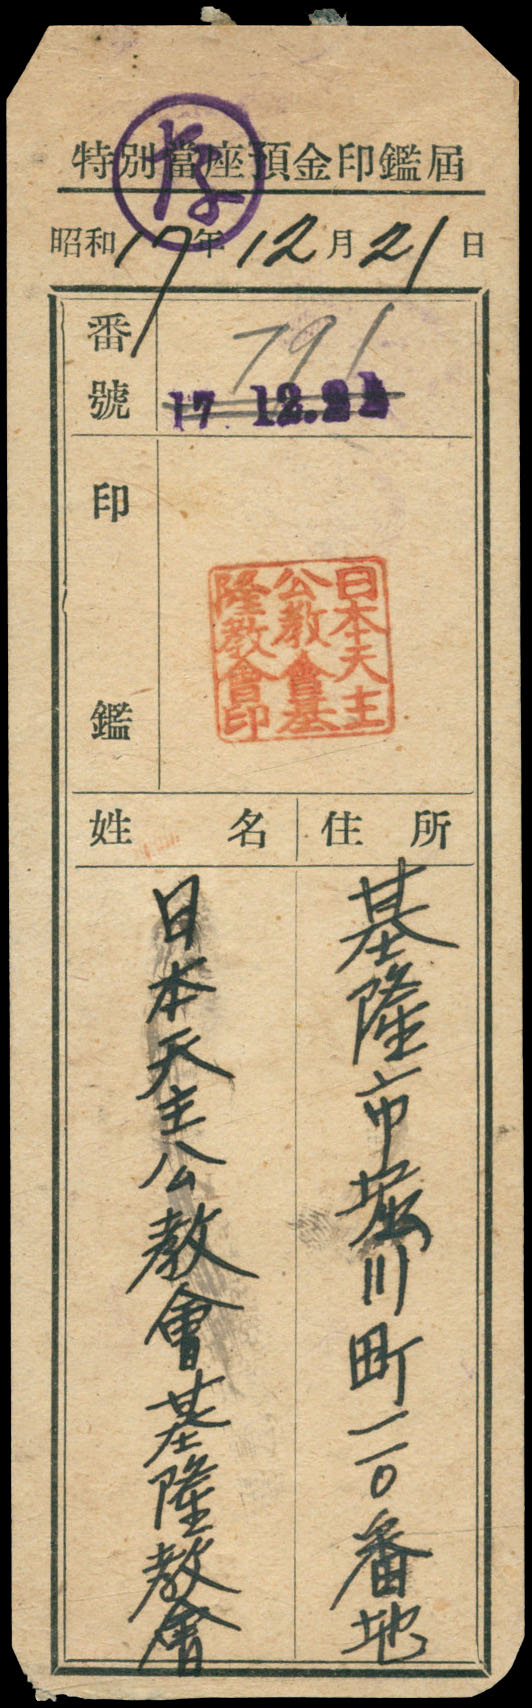 特別當座預金印鑑屆
昭和17年12月21日
番號
791
17 12.21
印鑑
日本天主
公教會基
隆教會印
住所
基隆市堀川町一一〇番地
姓名
日本天主公教會基隆教會